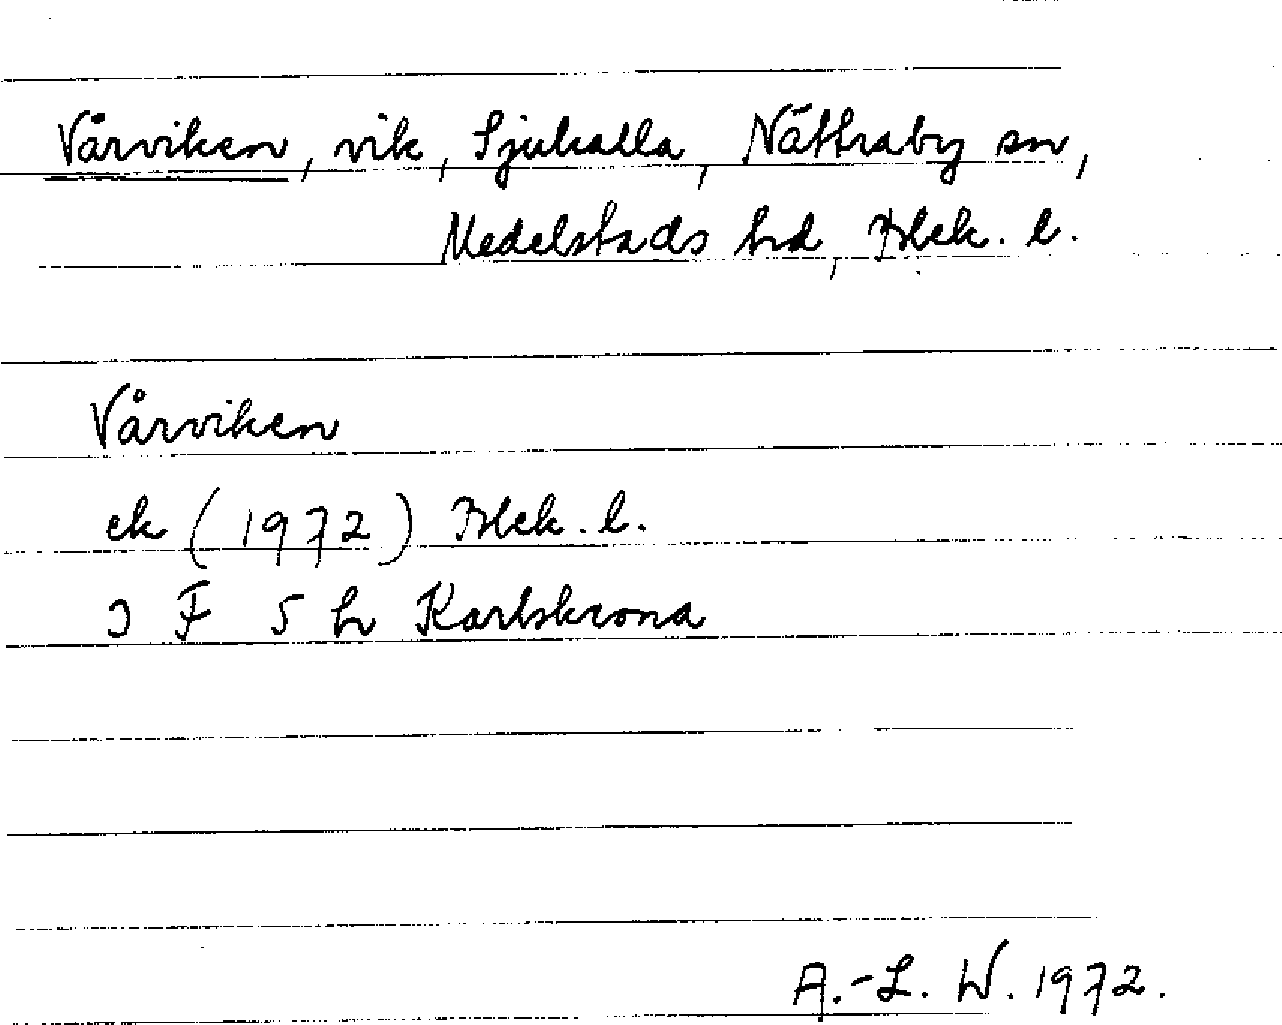 Vårviken, vik, Sjuhalla, Nättraby sn,
Medelstads hd, Blek. l.
Vårviken
ek (1972) Blek. l.
3 F 5 h Karlskrona
A.-L. W. 1972.